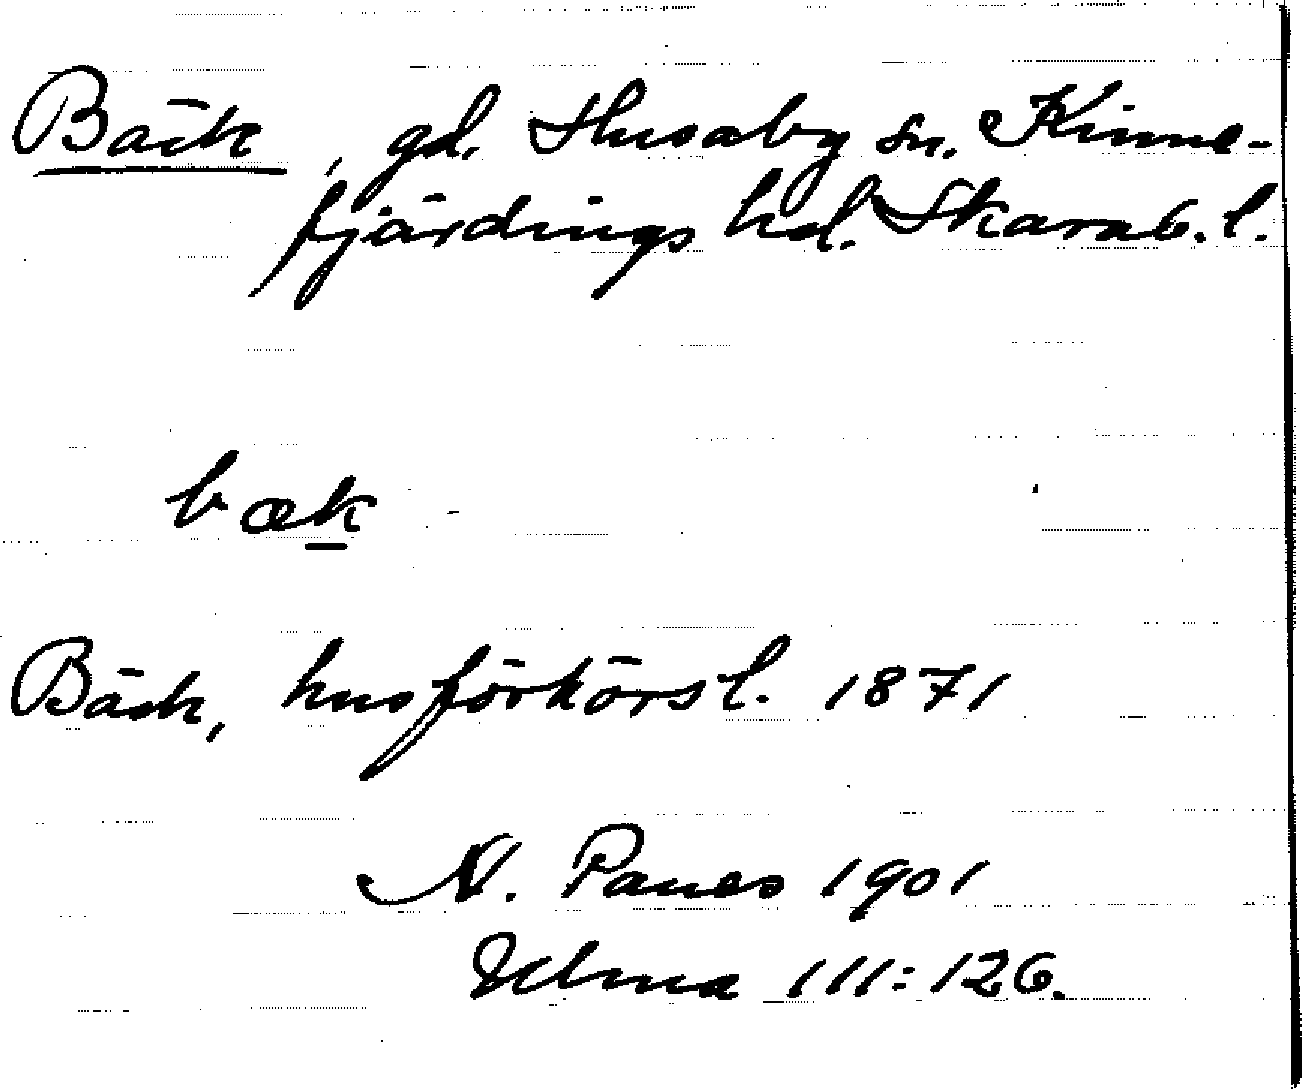 Bäck, gd. Husaby sn. Kinne-
fjärdings hd. Skarab. l.
bæk
Bäck, husförhörsl. 1871
N. Panes 1901
111:126.